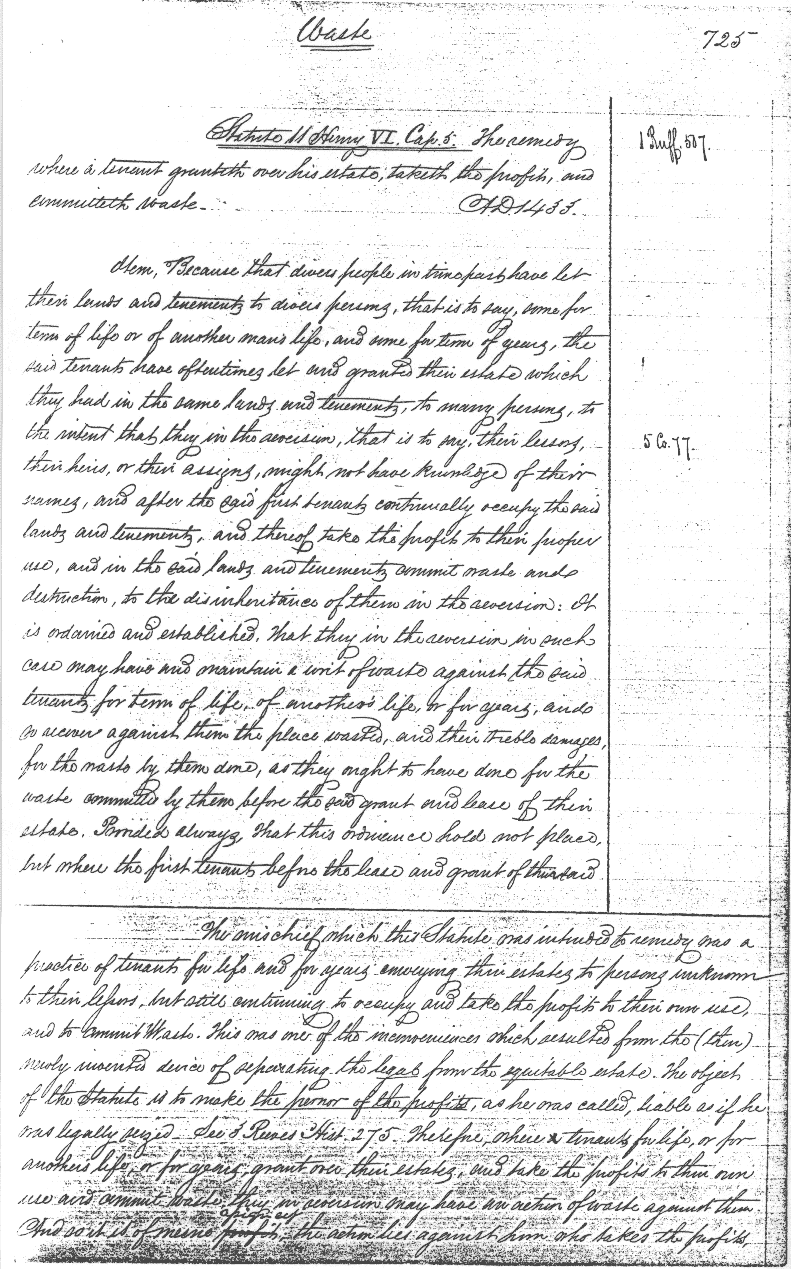 Waste
725
Statute 11 Henry VI. Cap. 5. The remedy
1 Ruff. 507.
where a tenant granteth over his estate, taketh the profits, and
committeth waste.
AD 1433.
Item, Because that divers people in time past have let
their lands and tenements to divers persons, that is to say, some for
term of life or of another mans life, and some for term of years, the
said tenants have oftentimes let and granted their estate which
they had in the same lands and tenements, to many persons, to
the intent that they in the reversion, that is to say, their lessors,
5 Co. 77.
their heirs, or their assigns, might not have knowledge of their
names, and after the said first tenants continually occupy the said
lands and tenements, and thereof take the profits to their proper
use, and in the said lands and tenements commit waste and
destruction, to the disinheritance of them in the reversion: It
is ordained and established, that they in the reversion in such
case may have and maintain a writ of waste against the said
tenants for term of life, of another's life, or for years, and
so recover against them the place wasted, and their treble damages,
for the waste by them done, as they ought to have done for the
waste committed by them before the said grant and lease of their
estate. Provided always, that this ordinance hold not place,
but where the first tenants before the lease and grant of their said
The mischief which this Statute was intended to remedy was a
practice of tenants for life and for years conveying their estates to persons unknown
to their lessors, but still continuing to occupy and take the profits to their own use,
and to commit Waste. This was one of the inconveniences which resulted from the (then)
newly invented device of separating the legal from the equitable estate. The object
of the Statute is to make the pernor of the profits, as he was called, liable as if he
was legally seized. See 3 Reeves Hist. 275. Therefore, where tenants for life, or for
anothers life, or for years, grant over their estates, and take the profits to their own
use and commit waste, they in reversion may have an action of waste against them.
And so it is of mesne assignees, the action lies against him who takes the profits,